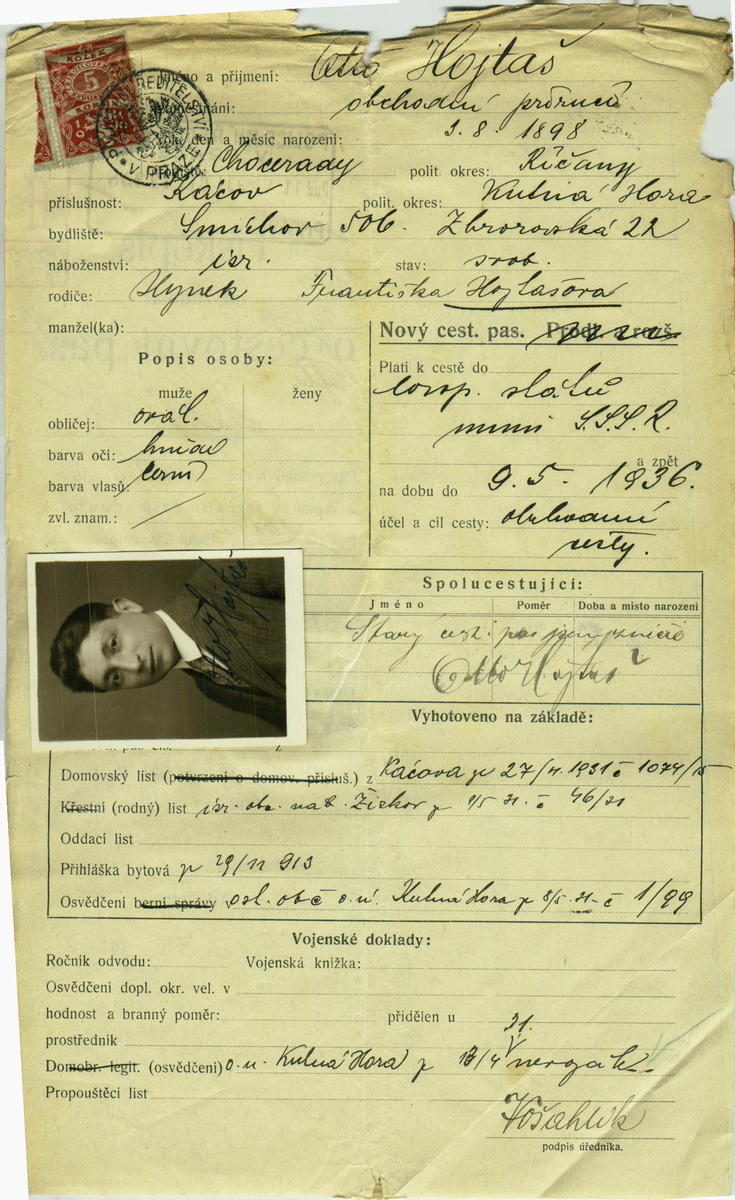 Č.S. KOLEK
5
POLICEJNÍ ŘEDITELSTVÍ V PRAZE
jméno a přijmení: Otto Hojtaš
obchodní
den a měsíc narození: 3. 8. 1898
Chocerady polit. okres: Říčany
příslušnost: Kácov polit. okres: Kutná Hora
bydliště: Smíchov 506. Zborovská 22
náboženství: isr. stav: svob.
rodiče: Hynek Františka Hojtašova
manžel(ka):
Nový cest. pas.
Popis osoby:
Platí k cestě do
muže ženy
evrop. států
obličej: ovál.
mimo S.S.S.R.
barva očí: hnědé
a zpět
barva vlasů: černé
na dobu do 9. 5. 1936.
zvl. znam.: /
účel a cíl cesty: obchodní
cesty.
Otto Hojtaš
Spolucestující:
Jméno Poměr Doba a místo narození
Starý cest. pas
Otto Hojtaš
Vyhotoveno na základě:
Domovský list (potvrzení o domov. přísluš.) z Kácova z 27/4. 1931 č 1074/15
Křestní (rodný) list isr. ob. náb. Žižkov z 8/5 31. č 46/31
Oddací list
Přihláška bytová z 29/11 913
Osvědčení berní správy v osl. obč o. ú. Kutná Hora z 8/5 31 č 1/99
Vojenské doklady:
Ročník odvodu: Vojenská knížka:
Osvědčení dopl. okr. vel. v
hodnost a branný poměr: přidělen u
prostředník 31.
Domobr. legit. (osvědčení) o. ú. Kutná Hora z 13/4
Propouštěcí list
Vošahlík
podpis úředníka.